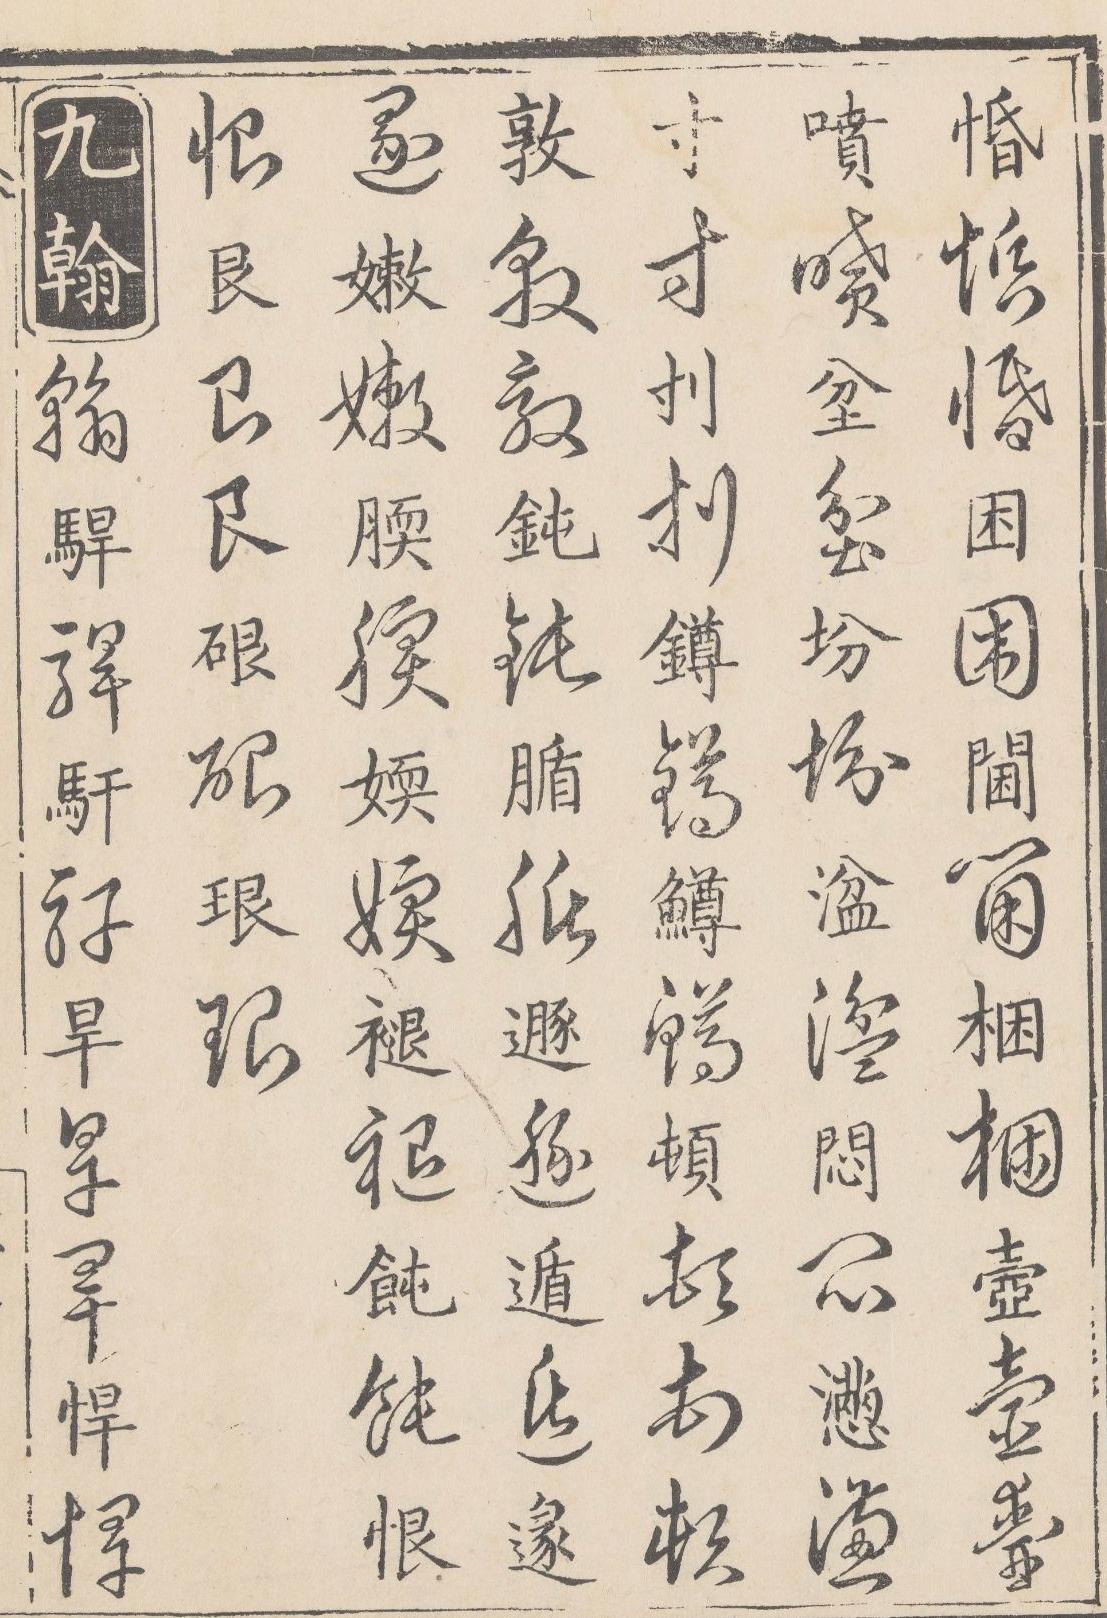 惛惛惛困困閫閫梱梱壼壼壼
噴噴坌坌坋坋湓湓悶悶懣懣
寸寸刌刌鐏鐏鱒鱒頓頓頓頓
敦敦敦鈍鈍腯腯遯遯遁遁
嫩嫩腝腝媆媆褪褪飩飩恨
恨艮艮艮硍硍珢珢
九翰翰駻駻馯馯旱旱旱悍悍